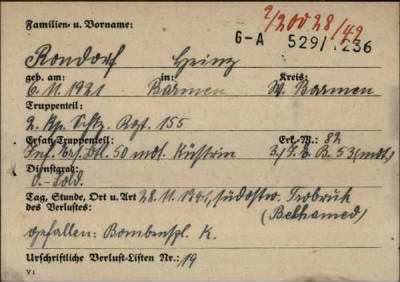 Familien- u. Vorname:
2/200 28/42
G-A 529/1236
Rondorf Heinz
geb. am: in: Kreis:
6.11.1921 Barmen W. Barmen
Truppenteil:
2. Kp. Schtz. Rgt. 155
Ersatz-Truppenteil: Erk.-M.: 82
Inf. Ers. Btl. 50 mot. Küstrin 3./ E. B. 53 (mot)
Dienstgrad:
O.-Sold.
Tag, Stunde, Ort u. Art 28.11.1941, südostw. Tobruk
des Verlustes: (Belhamed)
gefallen: Bombenspl. K.
Urschriftliche Verlust-Listen Nr.: 19
V1